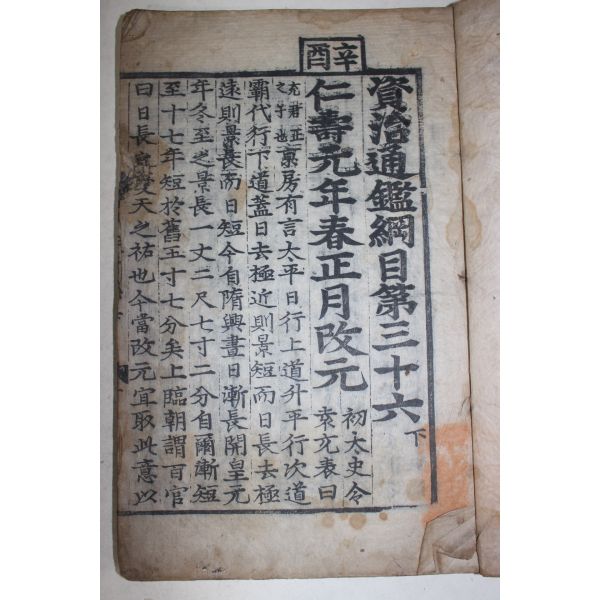 辛酉
資治通鑑綱目第三十六下
仁壽元年春正月改元 初太史令
袁充表曰
充君正
之子也 京房有言太平日行上道升平行次道
霸代行下道蓋日去極近則景短而日長去極
遠則景長而日短今自隋興晝日漸長開皇元
年冬至之景長一丈二尺七寸二分自爾漸短
至十七年短於舊五寸七分矣上臨朝謂百官
曰日長 天之祐也今當改元宜取此意以